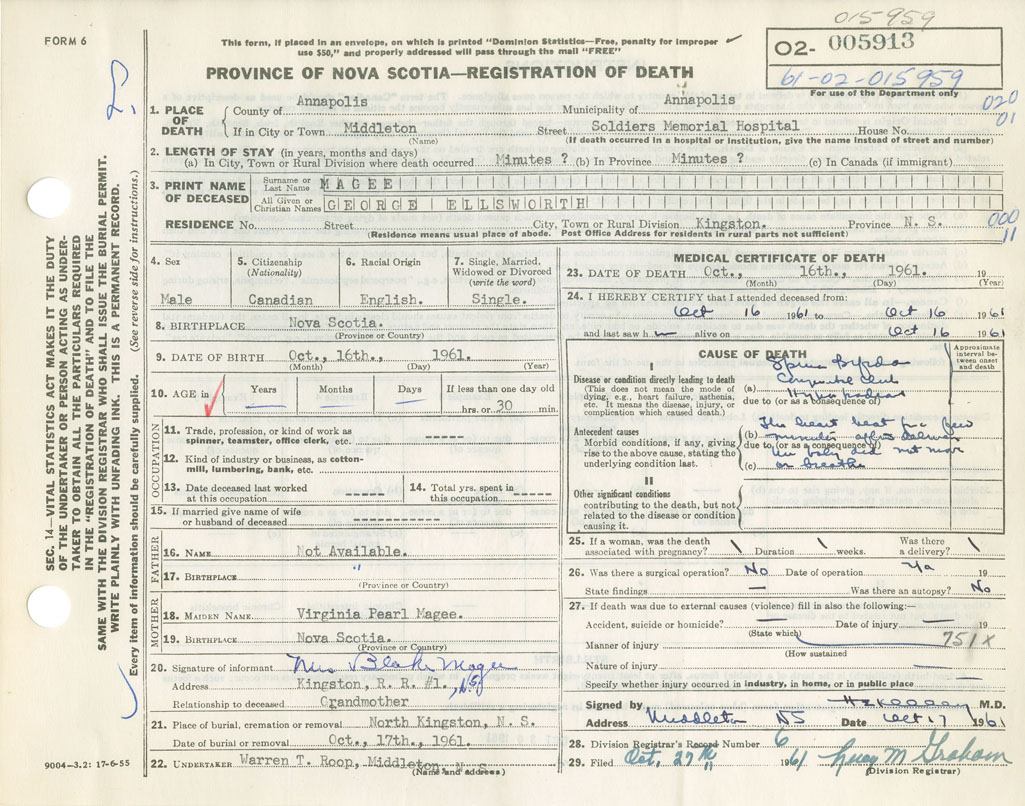 015959
FORM 6
This form, if placed in an envelope, on which is printed "Dominion Statistics—Free, penalty for improper
use $50," and properly addressed will pass through the mail "FREE"
O2- 005913
61-02-015959
For use of the Department only
PROVINCE OF NOVA SCOTIA—REGISTRATION OF DEATH
020
01
1. PLACE OF DEATH County of Annapolis Municipality of Annapolis
If in City or Town Middleton Street Soldiers Memorial Hospital House No.
(Name) (If death occurred in a hospital or institution, give the name instead of street and number)
2. LENGTH OF STAY (in years, months and days)
(a) In City, Town or Rural Division where death occurred Minutes ? (b) In Province Minutes ? (c) In Canada (if immigrant)
3. PRINT NAME OF DECEASED
Surname or Last Name MAGEE
All Given or Christian Names GEORGE ELLSWORTH
RESIDENCE No. Street City, Town or Rural Division Kingston. Province N. S.
(Residence means usual place of abode. Post Office Address for residents in rural parts not sufficient)
000
11
4. Sex
Male
5. Citizenship
(Nationality)
Canadian
6. Racial Origin
English.
7. Single, Married,
Widowed or Divorced
(write the word)
Single.
8. BIRTHPLACE Nova Scotia.
(Province or Country)
9. DATE OF BIRTH Oct., 16th., 1961.
(Month) (Day) (Year)
10. AGE in Years Months Days If less than one day old
hrs. or 30 min.
OCCUPATION
11. Trade, profession, or kind of work as
spinner, teamster, office clerk, etc. -----
12. Kind of industry or business, as cotton-
mill, lumbering, bank, etc.
13. Date deceased last worked
at this occupation -----
14. Total yrs. spent in
this occupation -----
15. If married give name of wife
or husband of deceased -----
FATHER
16. NAME Not Available.
17. BIRTHPLACE "
(Province or Country)
MOTHER
18. MAIDEN NAME Virginia Pearl Magee.
19. BIRTHPLACE Nova Scotia.
(Province or Country)
20. Signature of informant Mrs Blake Magee
Address Kingston, R. R. #1., N.S.
Relationship to deceased Grandmother
21. Place of burial, cremation or removal North Kingston, N. S.
Date of burial or removal Oct., 17th., 1961.
22. UNDERTAKER Warren T. Roop, Middleton, N. S.
(Name and address)
MEDICAL CERTIFICATE OF DEATH
23. DATE OF DEATH Oct., 16th., 1961. 19
(Month) (Day) (Year)
24. I HEREBY CERTIFY that I attended deceased from:
Oct 16 1961 to Oct 16 1961
and last saw h alive on Oct 16 1961
CAUSE OF DEATH
Approximate interval between onset and death
I
Disease or condition directly leading to death
(This does not mean the mode of
dying, e.g., heart failure, asthenia,
etc. It means the disease, injury, or
complication which caused death.)
Spina Byfida
(a) Congenital club
due to (or as a consequence of)
Antecedent causes
Morbid conditions, if any, giving
rise to the above cause, stating the
underlying condition last.
The heart beat for few
(b) minutes after delivery
due to (or as a consequence of)
baby did not move
(c) or breathe
II
Other significant conditions
contributing to the death, but not
related to the disease or condition
causing it.
25. If a woman, was the death
associated with pregnancy? \ Duration \ weeks. Was there
a delivery? \
26. Was there a surgical operation? No Date of operation 19
State findings — Was there an autopsy? No
27. If death was due to external causes (violence) fill in also the following:—
Accident, suicide or homicide? — Date of injury — 19
(State which)
Manner of injury 751x
(How sustained
Nature of injury —
Specify whether injury occurred in industry, in home, or in public place —
Signed by M.D.
Address Middleton NS Date Oct 17 1961
28. Division Registrar's Record Number 6
29. Filed Oct. 27th 1961 Graham
11
(Division Registrar)
SEC. 14—VITAL STATISTICS ACT MAKES IT THE DUTY
OF THE UNDERTAKER OR PERSON ACTING AS UNDER-
TAKER TO OBTAIN ALL THE PARTICULARS REQUIRED
IN THE "REGISTRATION OF DEATH" AND TO FILE THE
SAME WITH THE DIVISION REGISTRAR WHO SHALL ISSUE THE BURIAL PERMIT.
WRITE PLAINLY WITH UNFADING INK. THIS IS A PERMANENT RECORD.
Every item of information should be carefully supplied. (See reverse side for instructions.)
9004-3.2: 17-6-55